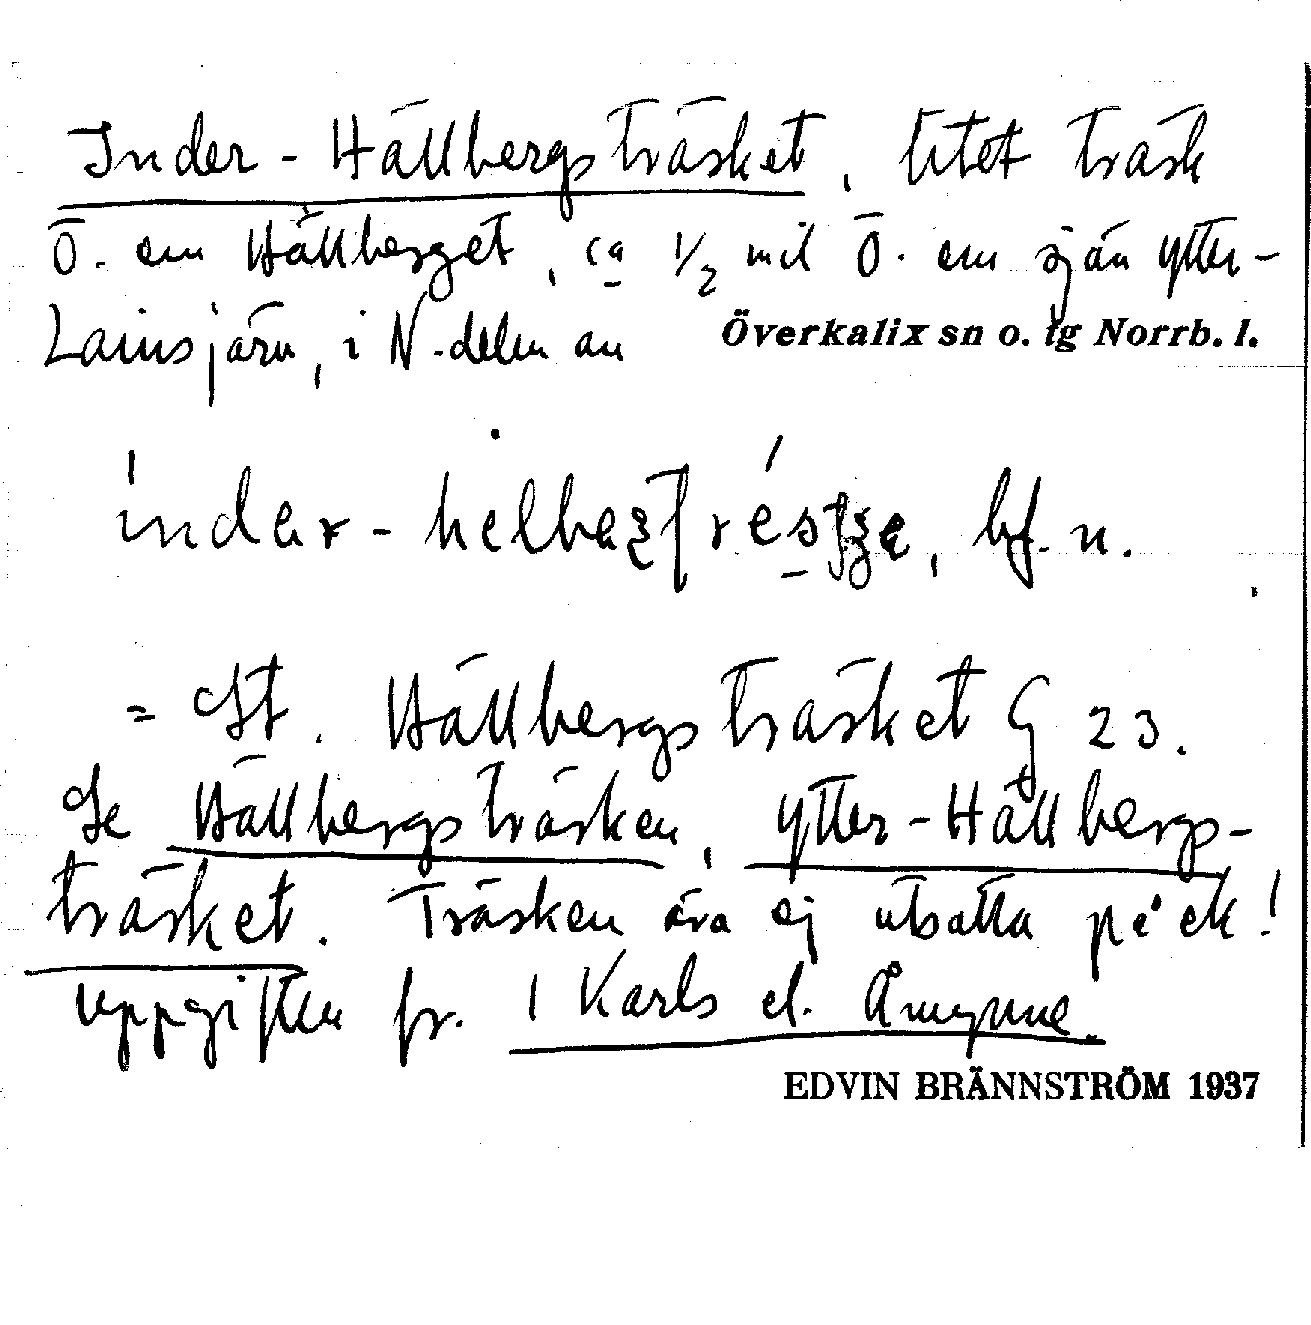 Inder-Hällbergsträsket, litet träsk
Ö. om Hällberget, ca 1/2 mil Ö. om sjön Ytter-
Lainsjärv, i N-delen av Överkalix sn o. tg Norrb. l.
bf. n.
= St. Hällbergsträsket G 23.
Se Hällbergsträsken, Ytter-Hällbergs-
träsket. Träsken äro ej utsatta på ek!
uppgiften fr. Karls el.
EDVIN BRÄNNSTRÖM 1937